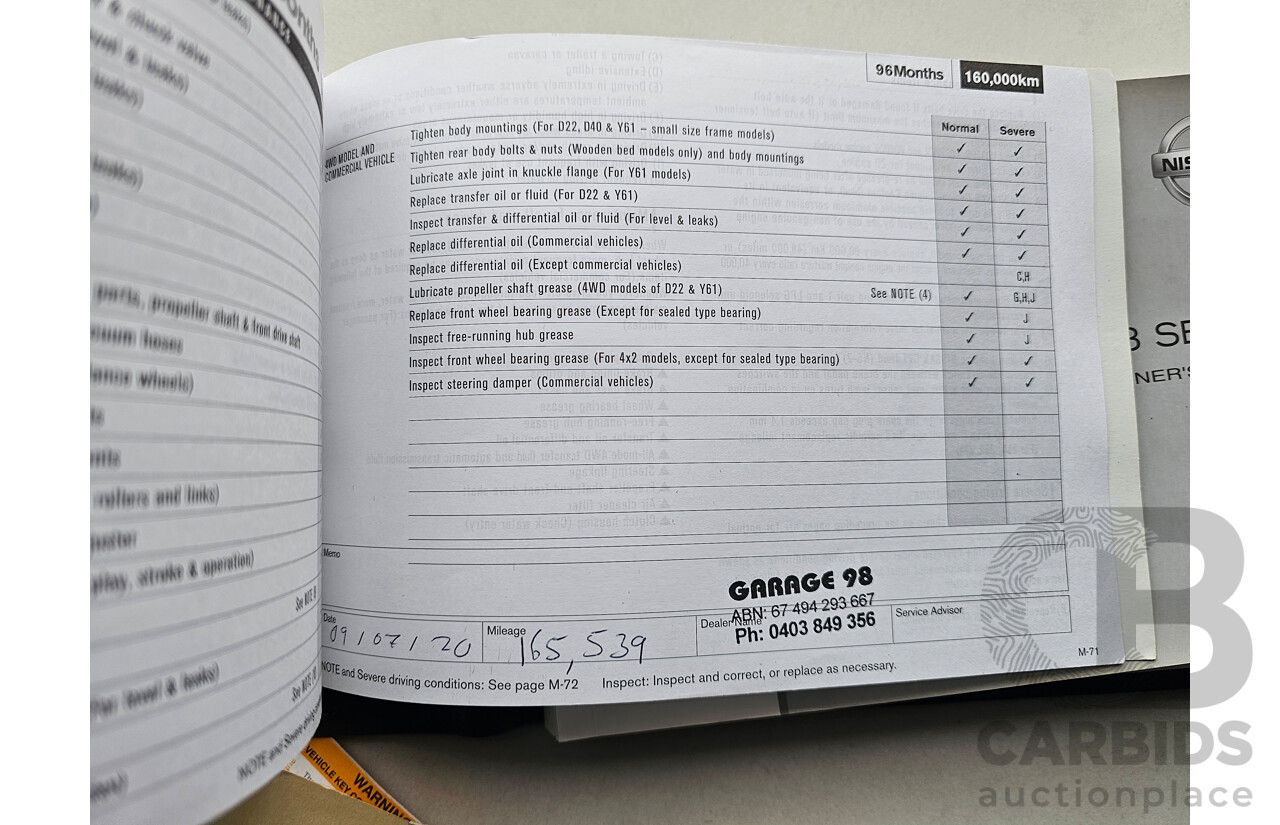 96Months 160,000km
Normal Severe
4WD MODEL AND
COMMERCIAL VEHICLE
Tighten body mountings (For D22, D40 & Y61 – small size frame models) ✓ ✓
Tighten rear body bolts & nuts (Wooden bed models only) and body mountings ✓ ✓
Lubricate axle joint in knuckle flange (For Y61 models) ✓ ✓
Replace transfer oil or fluid (For D22 & Y61) ✓ ✓
Inspect transfer & differential oil or fluid (For level & leaks) ✓ ✓
Replace differential oil (Commercial vehicles) ✓ ✓
Replace differential oil (Except commercial vehicles) C,H
Lubricate propeller shaft grease (4WD models of D22 & Y61) See NOTE (4) ✓ G,H,J
Replace front wheel bearing grease (Except for sealed type bearing) ✓ J
Inspect free-running hub grease ✓ J
Inspect front wheel bearing grease (For 4x2 models, except for sealed type bearing) ✓ ✓
Inspect steering damper (Commercial vehicles) ✓ ✓
Memo
GARAGE 98
ABN: 67 494 293 667
Ph: 0403 849 356
Date
09/07/20
Mileage
165,539
Dealer Name
Service Advisor
NOTE and Severe driving conditions: See page M-72 Inspect: Inspect and correct, or replace as necessary.
M-71
parts, propeller shaft & front drive shaft
rollers and links)
play, stroke & operation)
See NOTE
level & leaks)
See NOTE
NOTE and Severe
WARNING
VEHICLE KEY
NIS
SE
NER'S
CB
CARBIDS
auctionplace